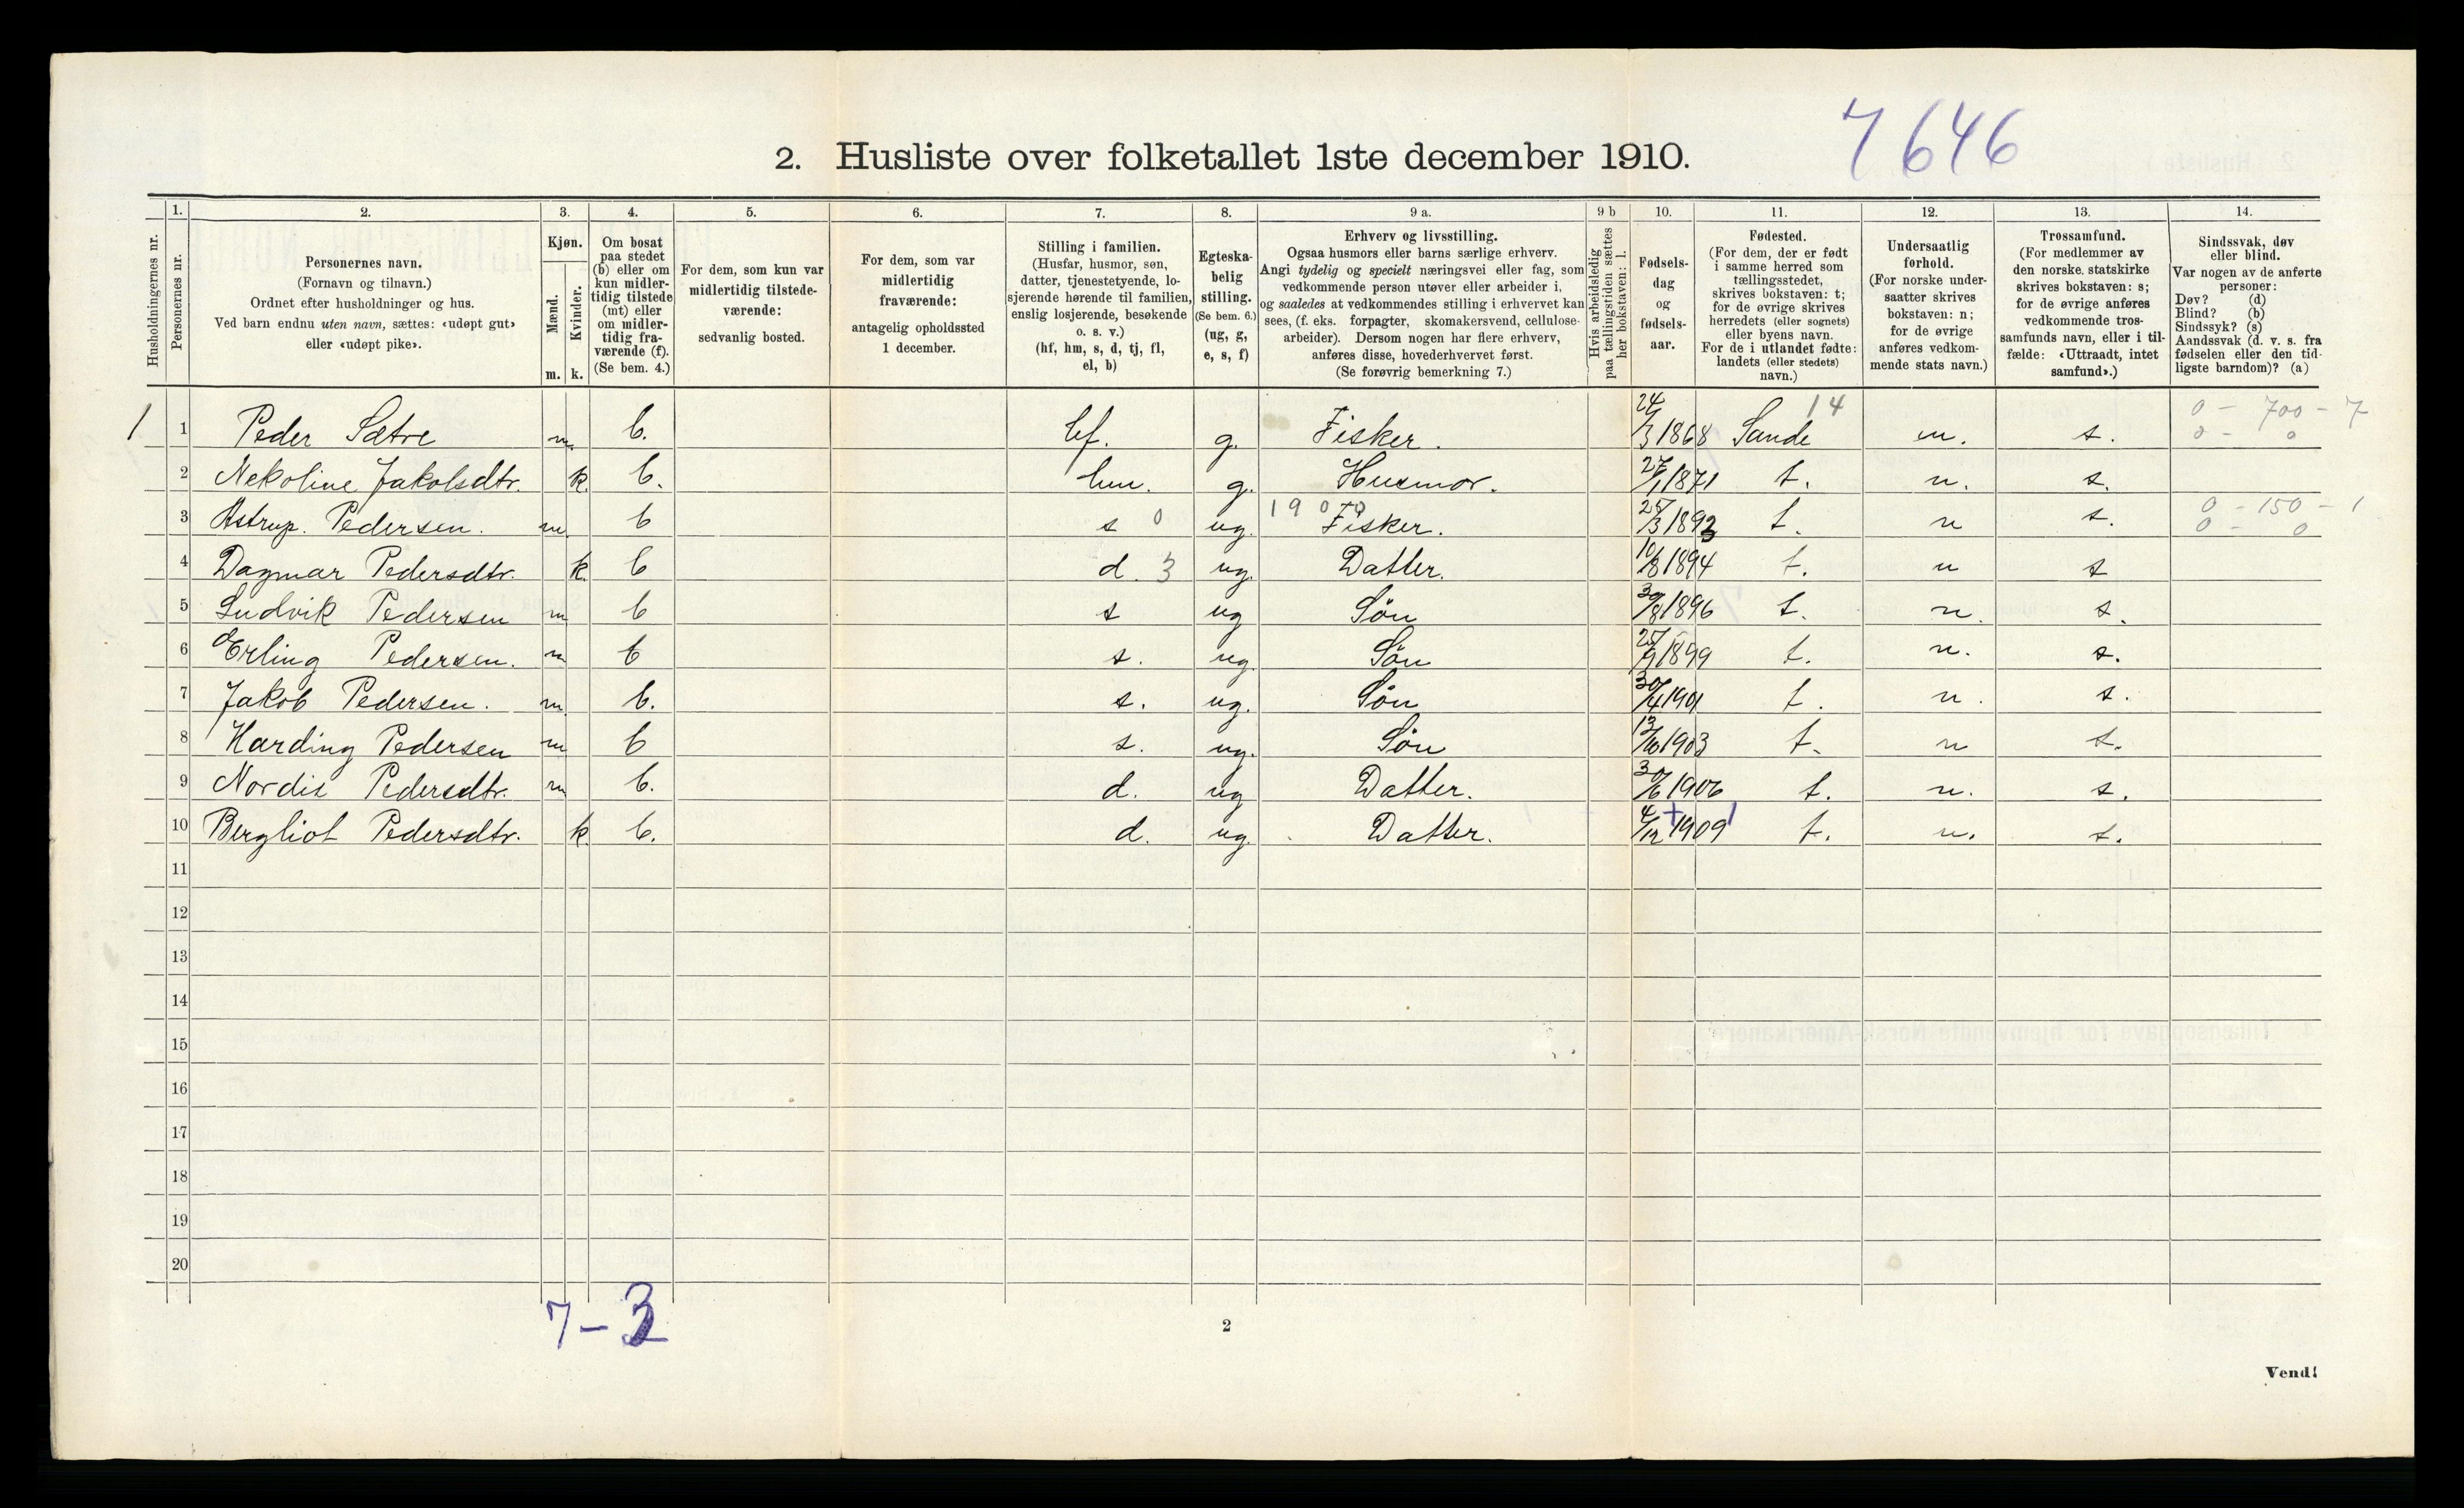 7646
2. Husliste over folketallet 1ste december 1910.
1. 2. 3. 4. 5. 6. 7. 8. 9 a. 9 b 10. 11. 12. 13. 14.
Husholdningernes nr.
Personernes nr.
Personernes navn.
(Fornavn og tilnavn.)
Ordnet efter husholdninger og hus.
Ved barn endnu uten navn, sættes: «udøpt gut»
eller «udøpt pike».
Kjøn.
Mænd.
Kvinder.
m. k.
Om bosat
paa stedet
(b) eller om
kun midler-
tidig tilstede
(mt) eller
om midler-
tidig fra-
værende (f).
(Se bem. 4.)
For dem, som kun var
midlertidig tilstede-
værende:
sedvanlig bosted.
For dem, som var
midlertidig
fraværende:
antagelig opholdssted
1 december.
Stilling i familien.
(Husfar, husmor, søn,
datter, tjenestetyende, lo-
sjerende hørende til familien,
enslig losjerende, besøkende
o. s. v.)
(hf, hm, s, d, tj, fl,
el, b)
Egteska-
belig
stilling.
(Se bem. 6.)
(ug, g,
e, s, f)
Erhverv og livsstilling.
Ogsaa husmors eller barns særlige erhverv.
Angi tydelig og specielt næringsvei eller fag, som
vedkommende person utøver eller arbeider i,
og saaledes at vedkommendes stilling i erhvervet kan
sees, (f. eks. forpagter, skomakersvend, cellulose-
arbeider). Dersom nogen har flere erhverv,
anføres disse, hovederhvervet først.
(Se forøvrig bemerkning 7.)
Hvis arbeidsledig
paa tællingstiden sættes
her bokstaven: l.
Fødsels-
dag
og
fødsels-
aar.
Fødested.
(For dem, der er født
i samme herred som
tællingsstedet,
skrives bokstaven: t;
for de øvrige skrives
herredets (eller sognets)
eller byens navn.
For de i utlandet fødte:
landets (eller stedets)
navn.)
Undersaatlig
forhold.
(For norske under-
saatter skrives
bokstaven: n;
for de øvrige
anføres vedkom-
mende stats navn.)
Trossamfund.
(For medlemmer av
den norske statskirke
skrives bokstaven: s;
for de øvrige anføres
vedkommende tros-
samfunds navn, eller i til-
fælde: «Uttraadt, intet
samfund».)
Sindssvak, døv
eller blind.
Var nogen av de anførte
personer:
Døv? (d)
Blind? (b)
Sindssyk? (s)
Aandssvak (d. v. s. fra
fødselen eller den tid-
ligste barndom)? (a)
14 0 - 700 - 7
1 1 Peder Sætre m. b. hf. g. Fisker. 24/3 1868 Sande n. s. 0 - 0
2 Nekoline Jakobsdtr. k. b. hm. g. Husmor. 27/1 1871 t. n. s.
1900 0 - 150 - 1
3 Astrup. Pedersen. m. b s 0 ug. Fisker. 25/3 1893 t. n s. 0 - 0
4 Dagmar Pedersdtr. k. b d. 3 ug. Datter. 10/8 1894 t. n s
5 Ludvik Pedersen m b s ug Søn 30/8 1896 t. n. s.
6 Erling Pedersen. m b s. ug. Søn 25/9 1899 t. n. s.
7 Jakob Pedersen. m. b. s. ug. Søn 30/4 1901 t. n. s.
8 Harding Pedersen m b s. ug. Søn 13/10 1903 t. n s.
9 Nordis Pedersdtr. m b. d. ug Datter. 30/6 1906 t. n. s.
10 Bergliot Pedersdtr. k. b. d. ug. Datter. 4/12 1909 t. n. s.
11
12
13
14
15
16
17
18
19
20
7 - 3
2
Vend!